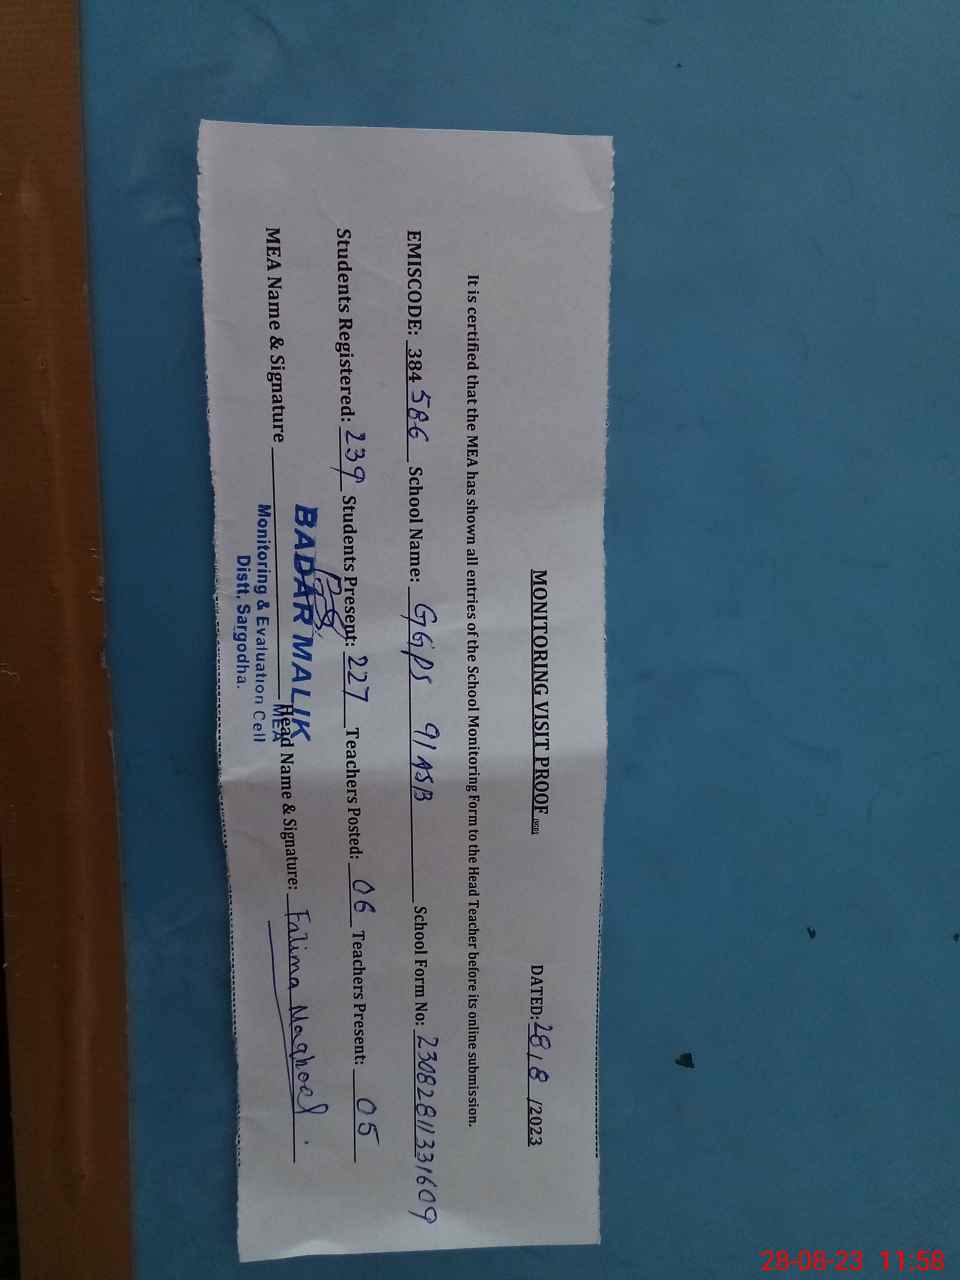 MONITORING VISIT PROOF DATED: 28/8/2023
It is certified that the MEA has shown all entries of the School Monitoring Form to the Head Teacher before its online submission.
EMISCODE: 384586 School Name: GGPS 91 NSB School Form No: 23082811331609
Students Registered: 239 Students Present: 227 Teachers Posted: 06 Teachers Present: 05
MEA Name & Signature Head Name & Signature: Fatima
BADAR MALIK
MEA
Monitoring & Evaluation Cell
Distt. Sargodha.
28-08-23 11:58